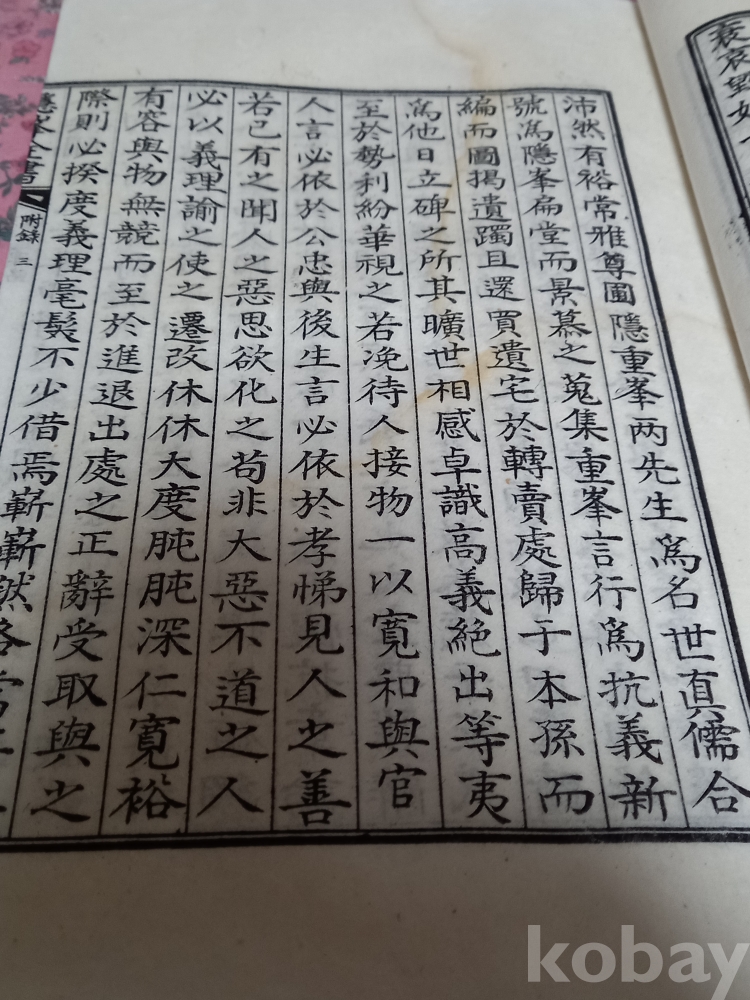 沛然有裕常雅尊圃隱重峯两先生爲名世眞儒合
號爲隱峯扁堂而景慕之蒐集重峯言行爲抗義新
編而圖揭遺躅且還買遺宅於轉賣處歸于本孫而
爲他日立碑之所其曠世相感卓識高義絶出等夷
至於勢利紛華視之若凂待人接物一以寬和與官
人言必依於公忠與後生言必依於孝悌見人之善
若己有之聞人之惡思欲化之苟非大惡不道之人
必以義理諭之使之遷改休休大度肫肫深仁寬裕
有容與物無競而至於進退出處之正辭受取與之
際則必揆度義理毫髮不少借焉嶄嶄然
峯全書
附錄 三
袞
kobay